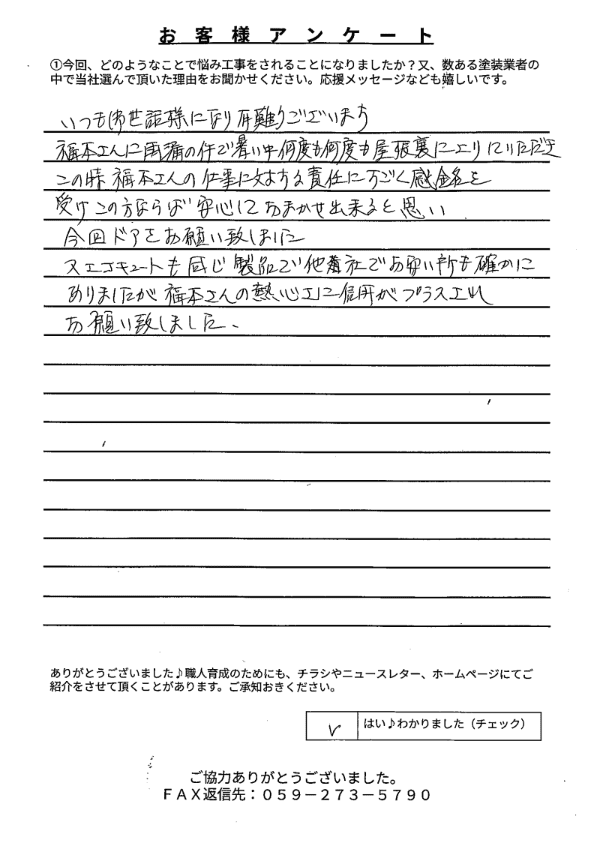 お客様アンケート
①今回、どのようなことで悩み工事をされることになりましたか？又、数ある塗装業者の
中で当社選んで頂いた理由をお聞かせください。応援メッセージなども嬉しいです。
いつもお世話様になり有難うございます
福本さんに雨漏の件で暑い中何度も何度も屋根裏に入っていただき
この時福本さんの仕事に対する責任にすごく感銘を
受けこの方ならば安心しておまかせ出来ると思い
今回ドアをお願い致しました
又エコキュートも同じ製品で他着社でお安い所も確かに
ありましたが福本さんの熱心さに信用がプラスされ
お願い致しました、
ありがとうございました♪職人育成のためにも、チラシやニュースレター、ホームページにてご
紹介をさせて頂くことがあります。ご承知おきください。
はい♪わかりました（チェック）
ご協力ありがとうございました。
ＦＡＸ返信先：０５９－２７３－５７９０